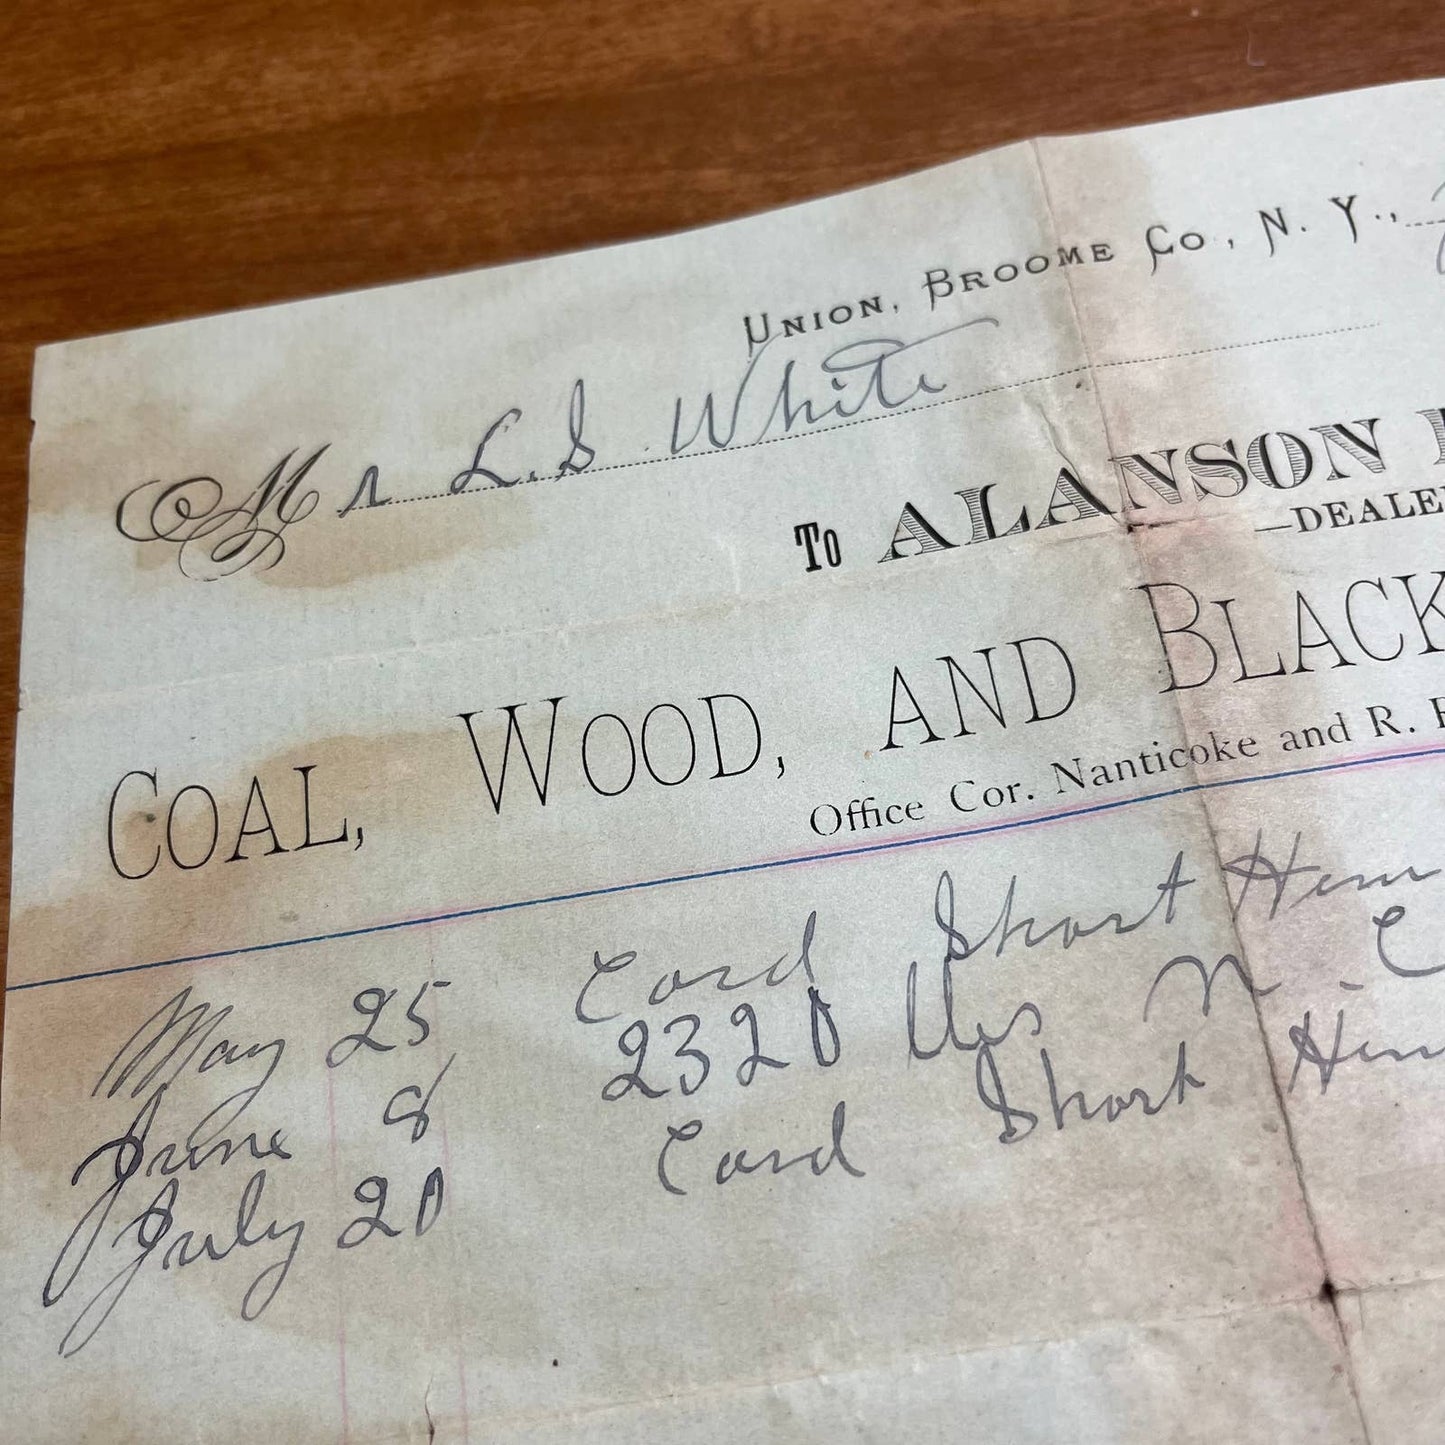 UNION, BROOME CO., N. Y.,
Mr L. S White
TO ALANSON
—DEALE
COAL, WOOD, AND BLACK
Office Cor. Nanticoke and R. R
May 25 Cord Short Hem
June 8 2320 lbs N. C
July 20 Cord Short Hem